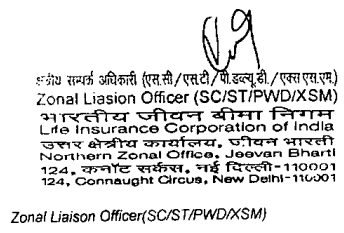 क्षेत्रीय सम्पर्क अधिकारी (एस.सी/एस.टी/पी.डब्ल्यू.डी./एक्स एस.एम.)
Zonal Liasion Officer (SC/ST/PWD/XSM)
भारतीय जीवन बीमा निगम
Life Insurance Corporation of India
उत्तर क्षेत्रीय कार्यालय, जीवन भारती
Northern Zonal Office, Jeevan Bharti
124, कनॉट सर्कस, नई दिल्ली-110001
124, Connaught Circus, New Delhi-110001
Zonal Liaison Officer(SC/ST/PWD/XSM)